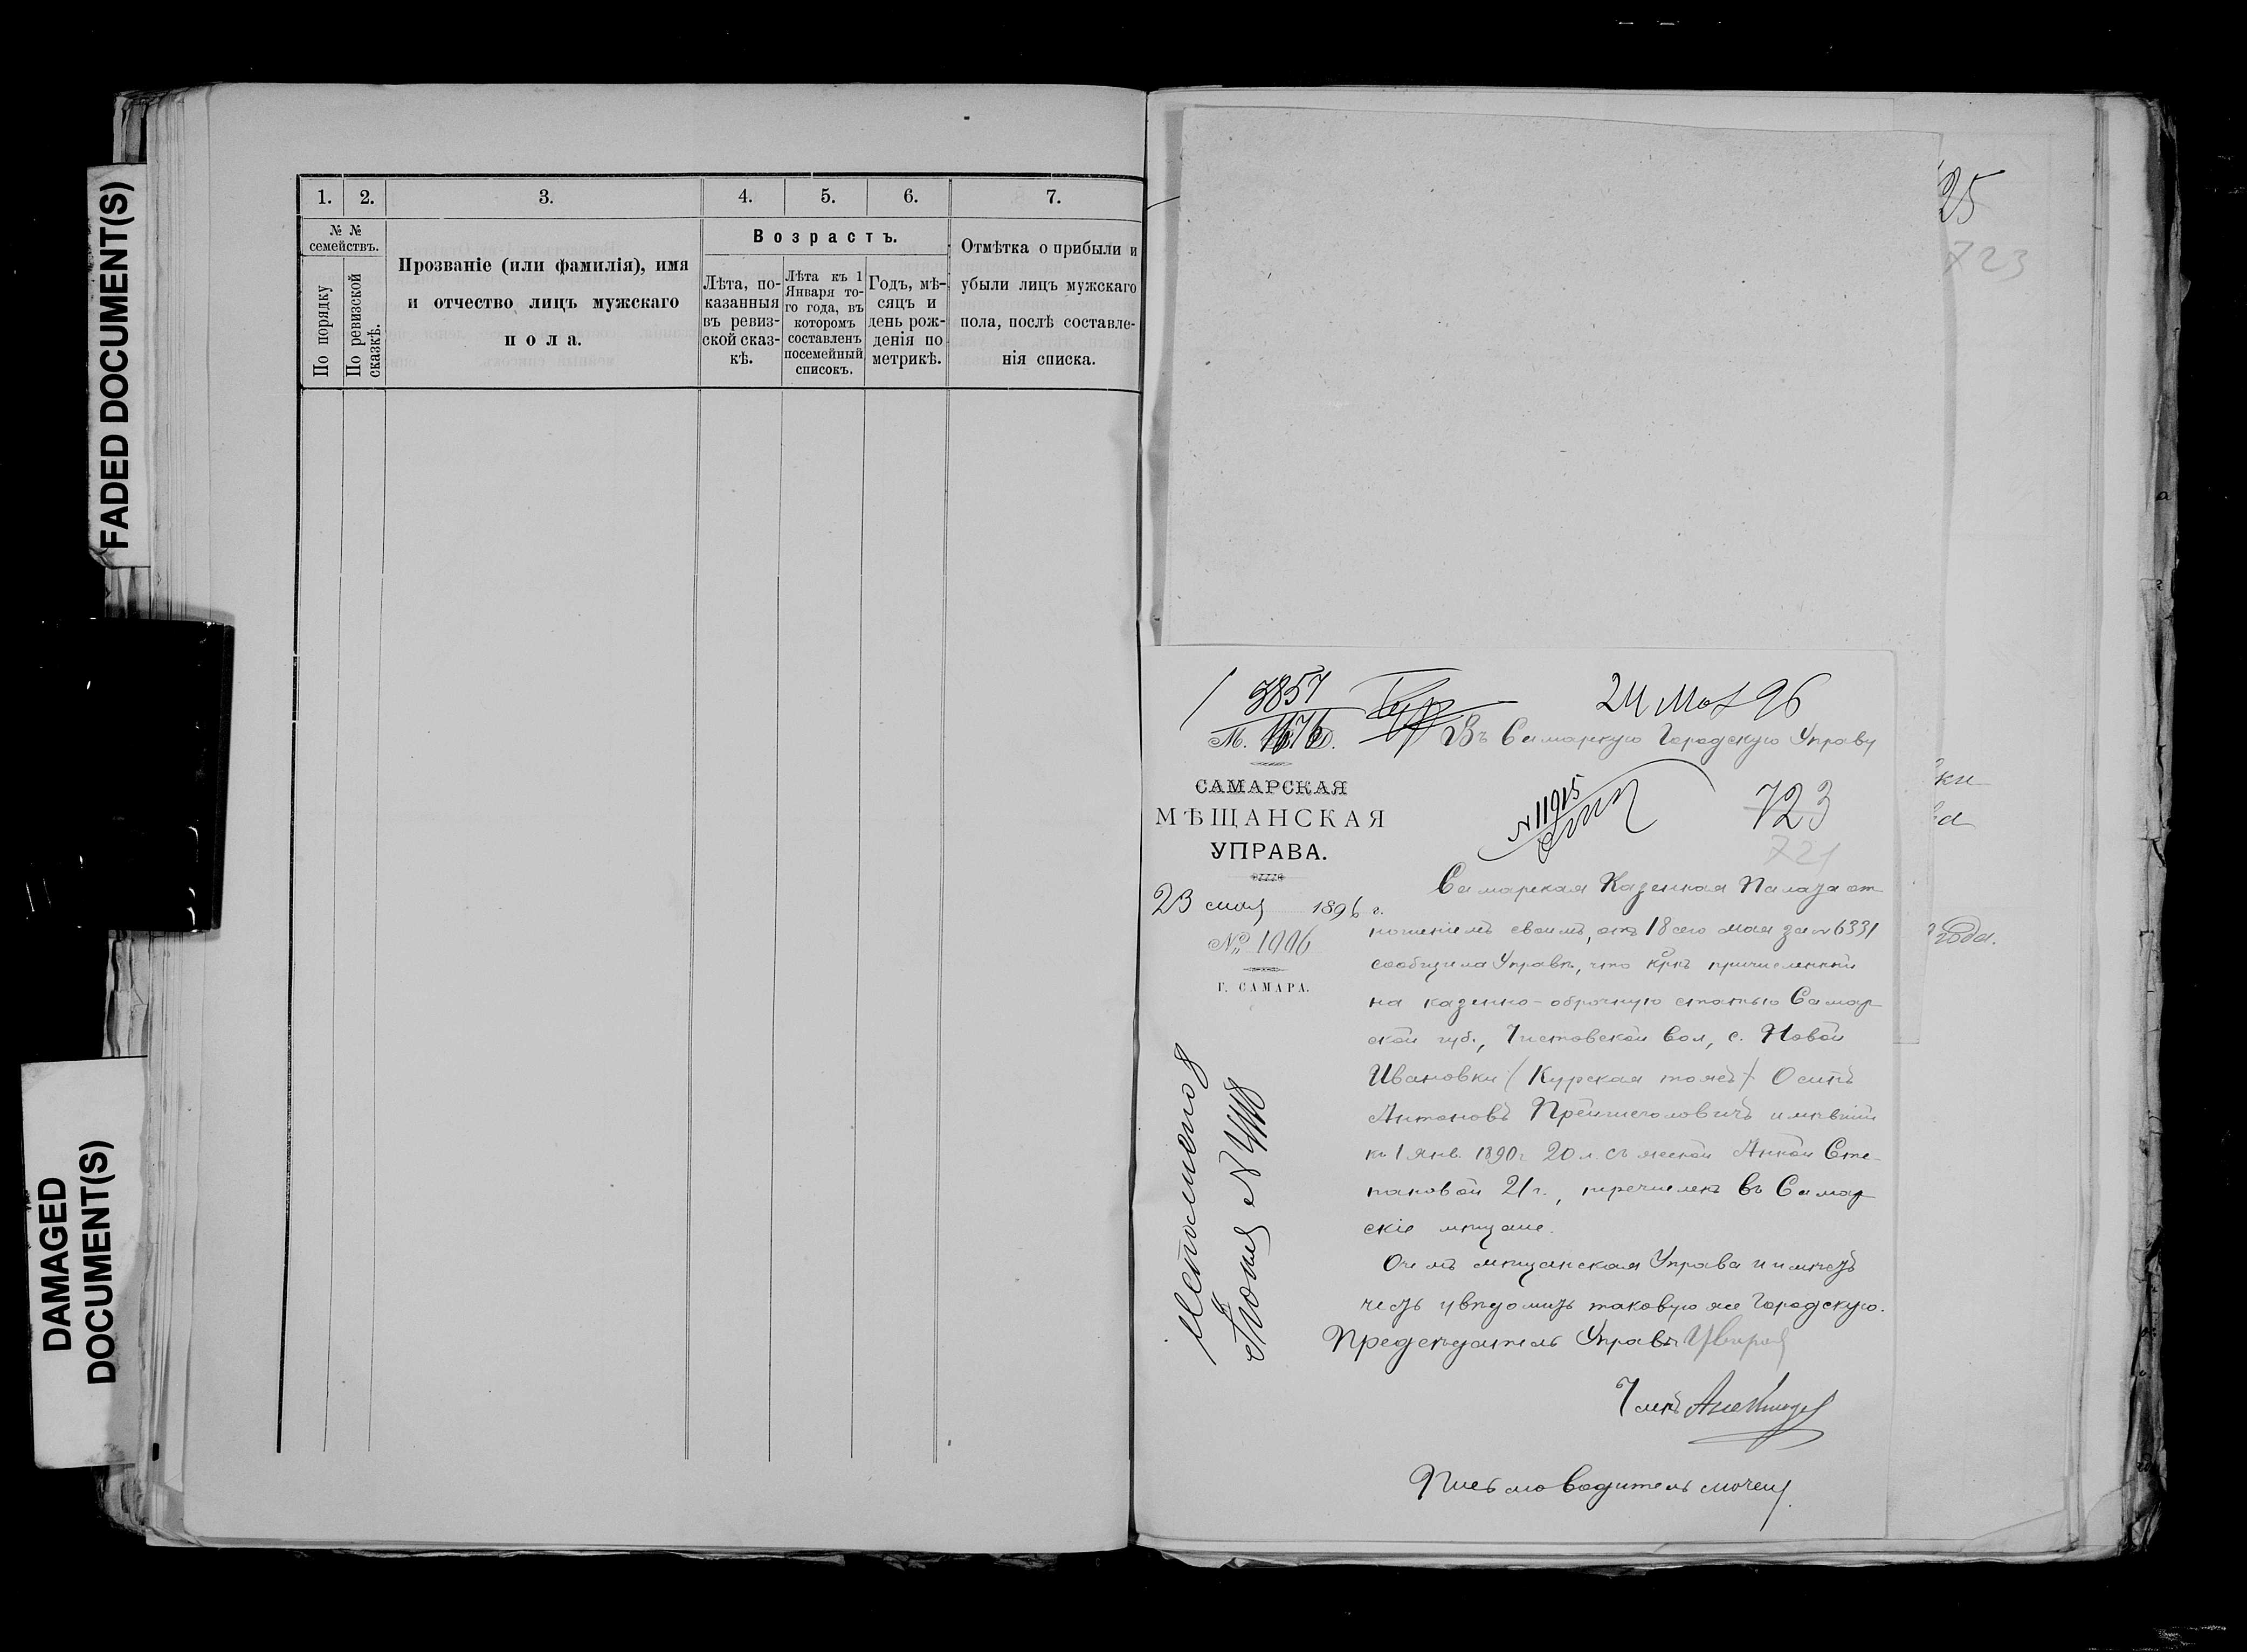 FADED DOCUMENT(S)
DAMAGED
DOCUMENT(S)
1. 2. 3. 4. 5. 6. 7.
№ №
семействъ.
По порядку
По ревизской
сказкѣ.
Прозваніе (или фамилія), имя
и отчество лицъ мужскаго
пола.
Возрастъ.
Лѣта, по-
казанныя
въ ревиз-
ской сказ-
кѣ.
Лѣта къ 1
Января то-
го года, въ
которомъ
составленъ
посемейный
списокъ.
Годъ, мѣ-
сяцъ и
день рож-
денія по
метрикѣ.
Отмѣтка о прибыли и
убыли лицъ мужскаго
пола, послѣ составле-
нія списка.
25
723
3857
24 Мая 96
М. В. Д.
Въ Самарскую Городскую Управу
САМАРСКАЯ
МѢЩАНСКАЯ
УПРАВА.
N 11915
723
721
23 мая 1896 г.
№ 1906
Г. САМАРА.
Самарская Казенная Палата от
ношеніемъ своимъ, отъ 18 сего мая за N 6331
сообщила Управѣ, что крнъ причисленный
на казенно-оброчную статью Самар
ской губ., Чистовской вол, с. Новой
Ивановки (Курская тожъ) Осипъ
Антоновъ имѣвшій
къ 1 Янв. 1890 г 20 л. съ женой Анной Сте-
пановой 21 г., перечисленъ въ Самар
скіе мѣщане.
О чемъ мѣщанская Управа и имѣетъ
честь увѣдомить таковую же Городскую.
Предсѣдатель Управы
Членъ
Письмоводитель
ки
года.